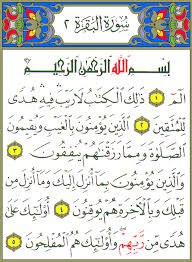 سُورَةُ البَقَرَة ٢
بِسْمِ اللَّهِ الرَّحْمَٰنِ الرَّحِيمِ
الٓمٓ ١ ذَٰلِكَ الْكِتَٰبُ لَا رَيْبَ فِيهِ هُدًى
لِّلْمُتَّقِينَ ٢ الَّذِينَ يُؤْمِنُونَ بِالْغَيْبِ وَيُقِيمُونَ
الصَّلَوٰةَ وَمِمَّا رَزَقْنَٰهُمْ يُنفِقُونَ ٣
وَالَّذِينَ يُؤْمِنُونَ بِمَآ أُنزِلَ إِلَيْكَ وَمَآ أُنزِلَ مِن
قَبْلِكَ وَبِالْآخِرَةِ هُمْ يُوقِنُونَ ٤ أُو۟لَٰٓئِكَ عَلَىٰ
هُدًى مِّن رَّبِّهِمْ وَأُو۟لَٰٓئِكَ هُمُ الْمُفْلِحُونَ ٥